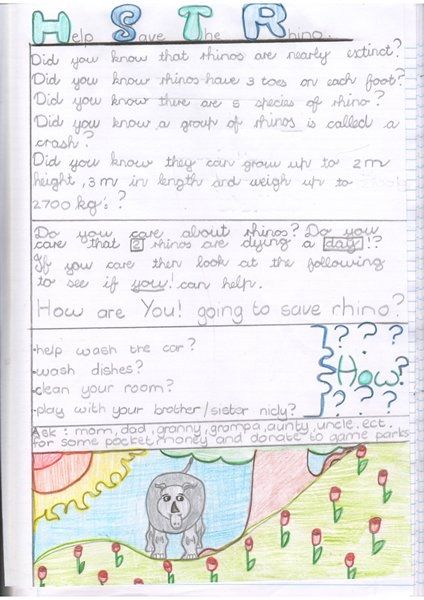 Help Save The Rhino.
Did you know that rhinos are nearly extinct?
Did you know rhinos have 3 toes on each foot?
Did you know there are 5 species of rhino?
Did you know a group of rhinos is called a
crash?
Did you know they can grow up to 2m
height, 3m in length and weigh up to
2700 kg's?
Do you care about rhinos? Do you
care that 2 rhinos are dying a day!?
If you care then look at the following
to see if you! can help.
How are You! going to save rhino?
•help wash the car?
•wash dishes?
•clean your room?
•play with your brother/sister nicly?
? ? ?
How?
? ? ?
Ask: mom, dad, granny, grampa, aunty, uncle. ect.
for some pocket money and donate to game parks